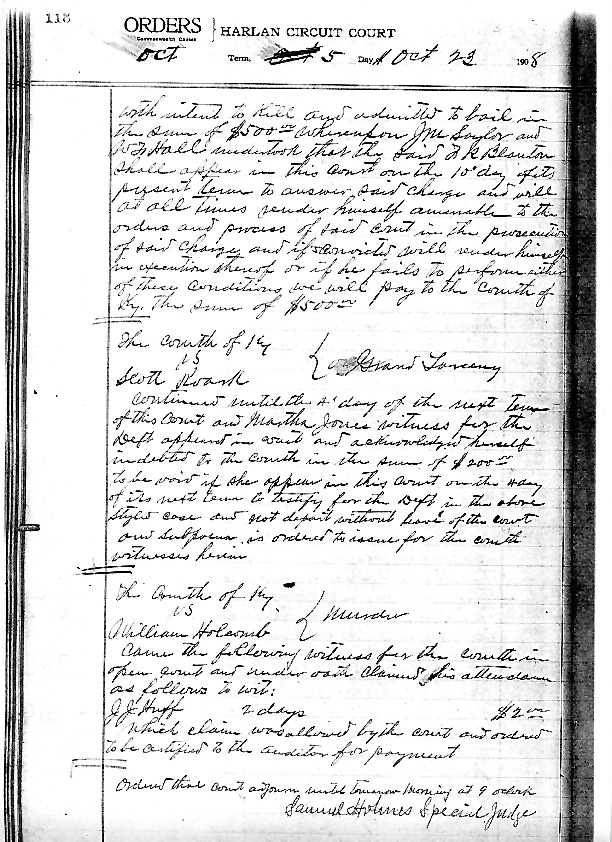 118
ORDERS
Commonwealth Causes
HARLAN CIRCUIT COURT
Oct Term, 5 Day, Oct 23 1908
with intent to kill and admitted to bail in
the sum of $500 00 whereupon J M Saylor and
W F Hall undertook that the said F K Blanton
shall appear in this Court on the 10" day of its
present term to answer said charge and will
at all times render himself amenable to the
orders and process of said court in the prosecution
of said charge and if convicted will render himself
in execution thereof or if he fails to perform either
of these conditions we will pay to the Comth of
Ky. the sum of $500 00
The Comth of Ky
VS Grand Larceny
Scott Roark
Continued until the 4' day of the next term
of this Court and Martha Jones witness for the
Deft appeared in court and acknowledged herself
indebted to the Comth in the sum of $200 00
to be void if she appear in this Court on the 4 day
of its next term to testify for the Deft in the above
styled case and not depart without leave of the court
and Subpoena is ordered to issue for the comth
witnesses herein
The Comth of Ky
VS Murder
William Holcomb
Came the following witness for the Comth in
open court and under oath claimed his attendance
as follows to wit:
J. J. Huff 2 days $2 00
Which claim was allowed by the court and ordered
to be certified to the auditor for payment
Ordered that court adjourn until tomorrow morning at 9 oclock
Samuel Holmes Special Judge